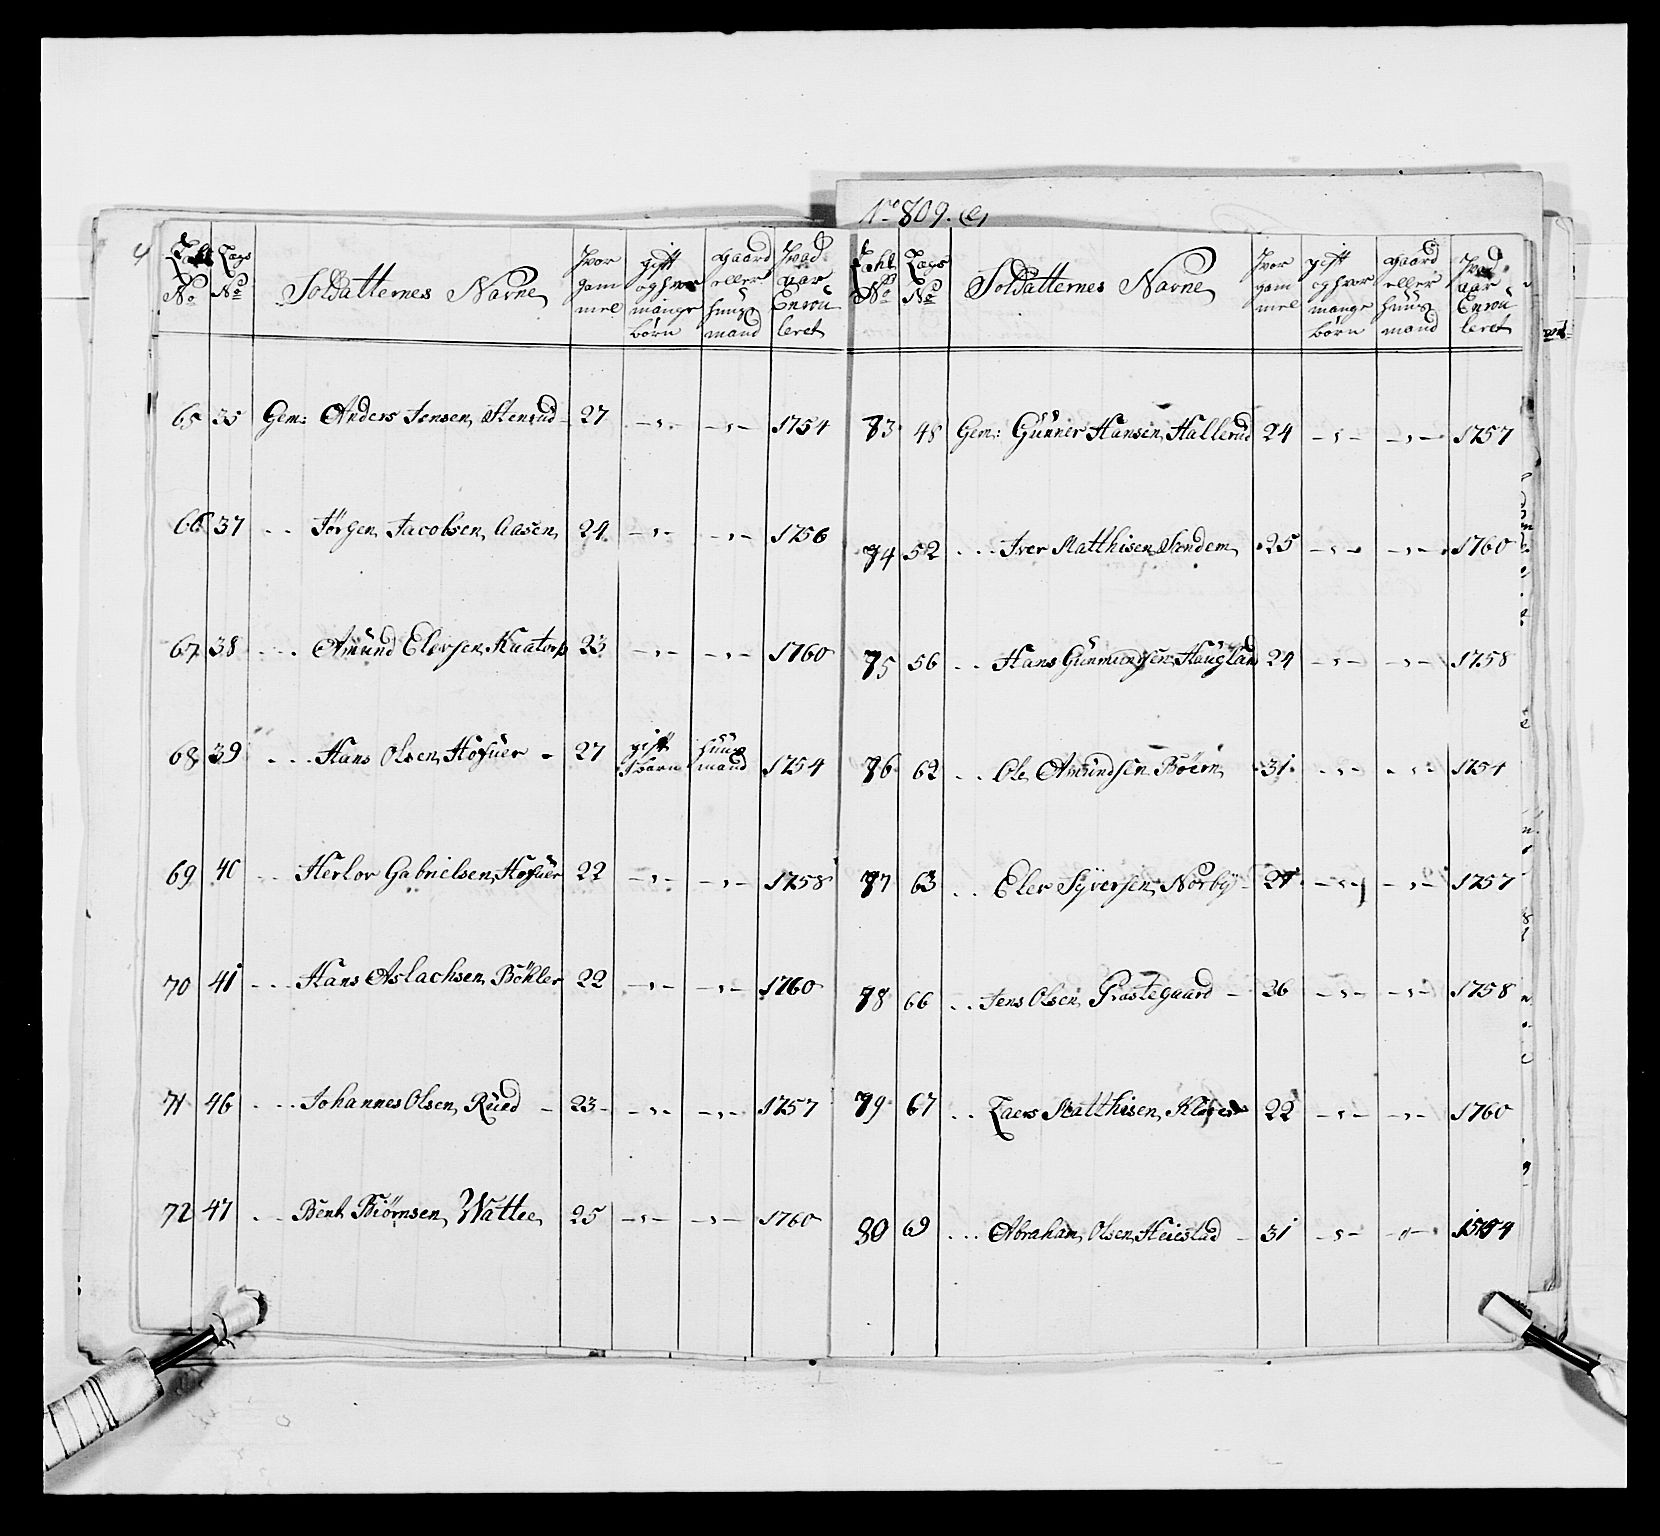 No 809. (e)
4
Tahl No
Lægs No
Soldatternes Navne
Hvor gam mel
gift og hvor mange børn
gaard eller huus mand
Hvad aar Enrou leret
65 35 Gem: Anders Jensen, Stensrud 27 - , - - , - 1754
66 37 - - Jørgen Jacobsen, Aasen, 24 - , - - , - 1756
67 38 - - - Amünd Elersen, Kaatorp 23 - , - - , - 1760
68 39 - - - Hans Olsen, Hofuer - 27 gift 1 barn huus mand 1754
69 40 - - Herlov Gabrielsen, Hofuer 22 - , - - , - 1758
70 41 - - - Hans Aslachsen, Böhler 22 - , - - , - 1760
71 46 - - - Johannes Olsen, Rüed - 23 - , - - , - 1757
72 47 - - Bent Biörnsen, Wattee, 25 - , - - , - 1760
Tahl No
Lægs No
Soldatternes Navne
Hvor gam mel
gift og hvor mange børn
gaard eller huus mand
Hvad aar Enrou leret
73 48 Gem: Günner Hansen, Hallerud 24 - , - - , - 1757
74 52 - - - Iver Matthisen, 25 - , - - , - 1760
75 56 - - Hans Günmundsen, Haugland 24 - , - - , - 1758
76 62 - - Ole Amündsen, Böern, 31 - , - - , - 1754
77 63 - - Eler Syversen, Norby - 27 - , - - , - 1757
78 66 - - Jens Olsen, Præstegaard - 36 - , - - , - 1758
79 67 - - Laers Matthisen, 22 - , - - , - 1760
80 69 - - - Abraham Olsen, Heiestad - 31 - , - - , - 1754